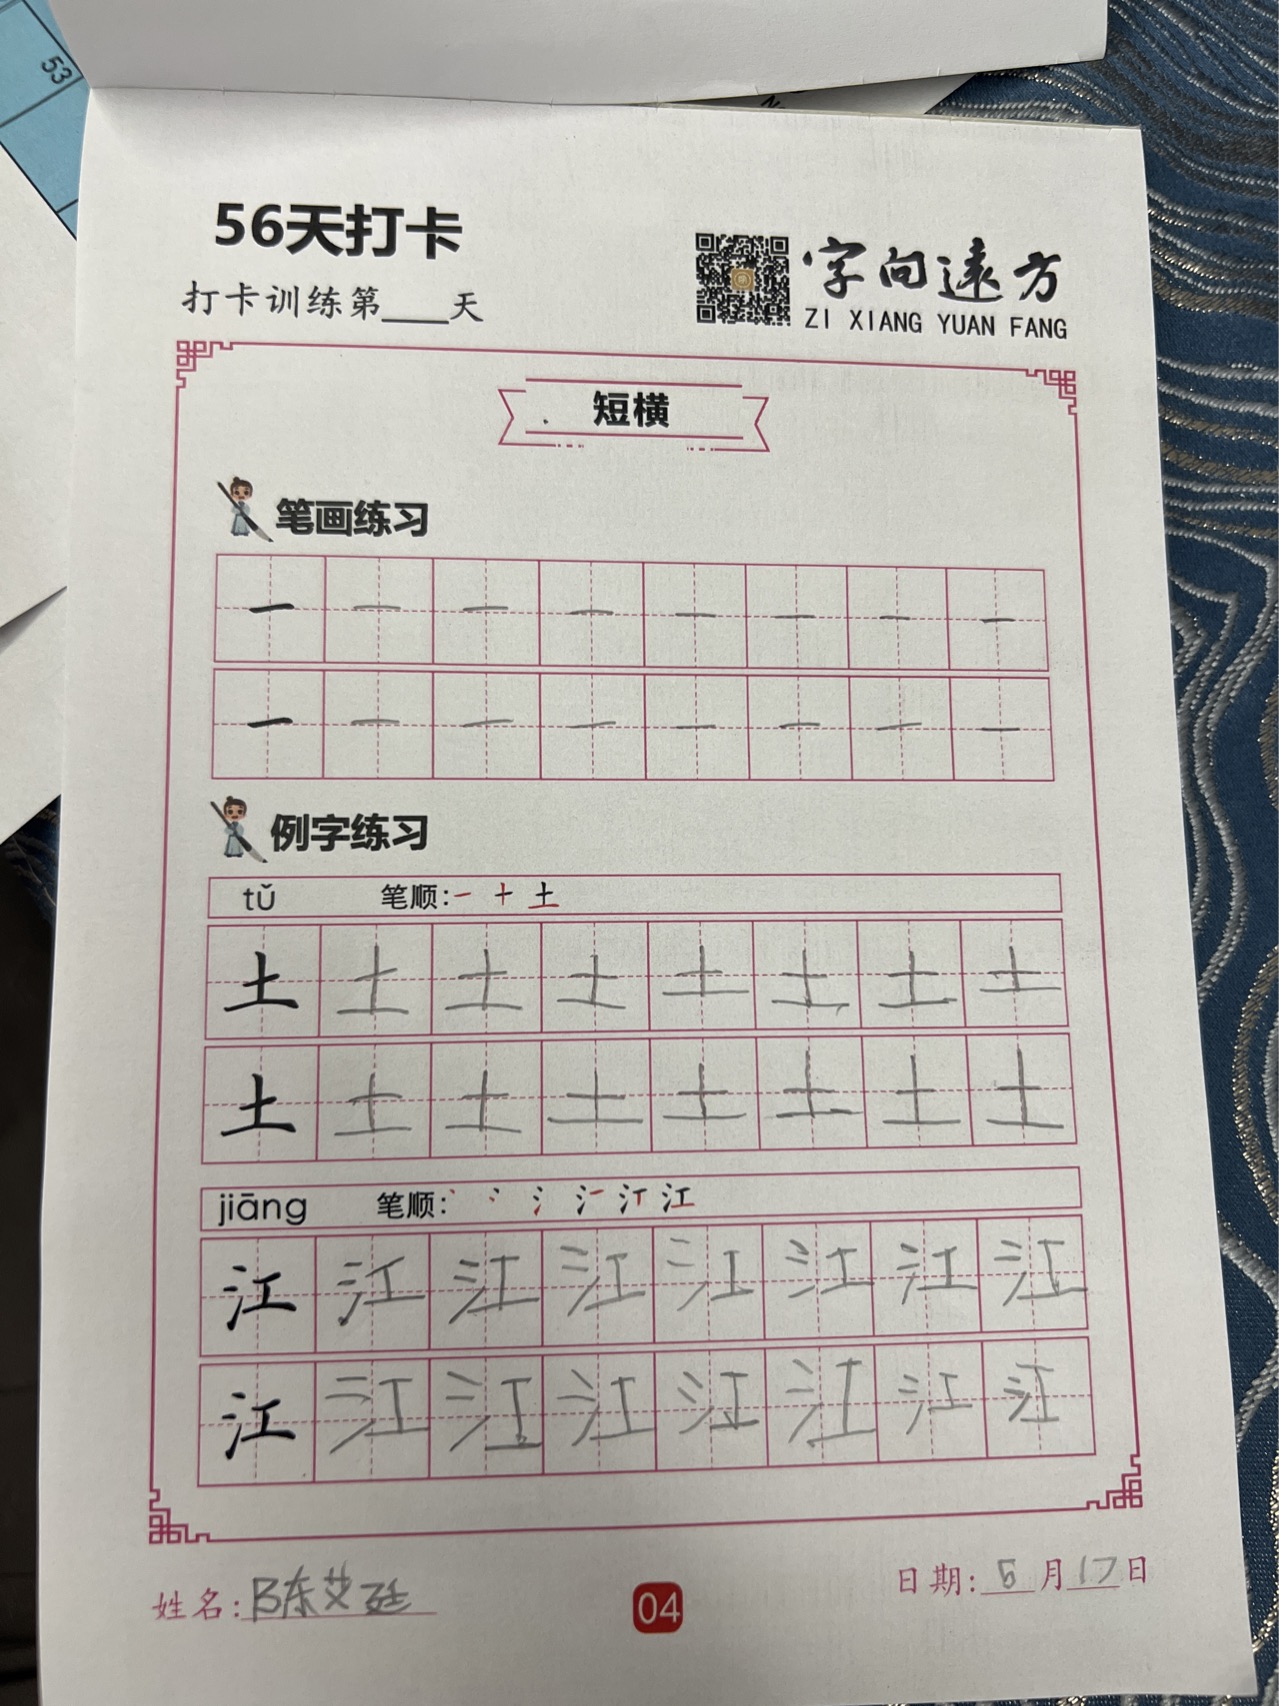 53
56天打卡
打卡训练第____天
字向远方
ZI XIANG YUAN FANG
短横
笔画练习
一 一 一 一 一 一 一 一
一 一 一 一 一 一 一 一
例字练习
tǔ 笔顺:一 十 土
土 土 土 土 土 土 土 土
土 土 土 土 土 土 土 土
jiāng 笔顺: 丶 冫 氵 江
江 江 江 江 江 江 江 江
江 江 江 江 江 江 江 江
姓名:陈艾廷
04
日期: 5 月 17 日